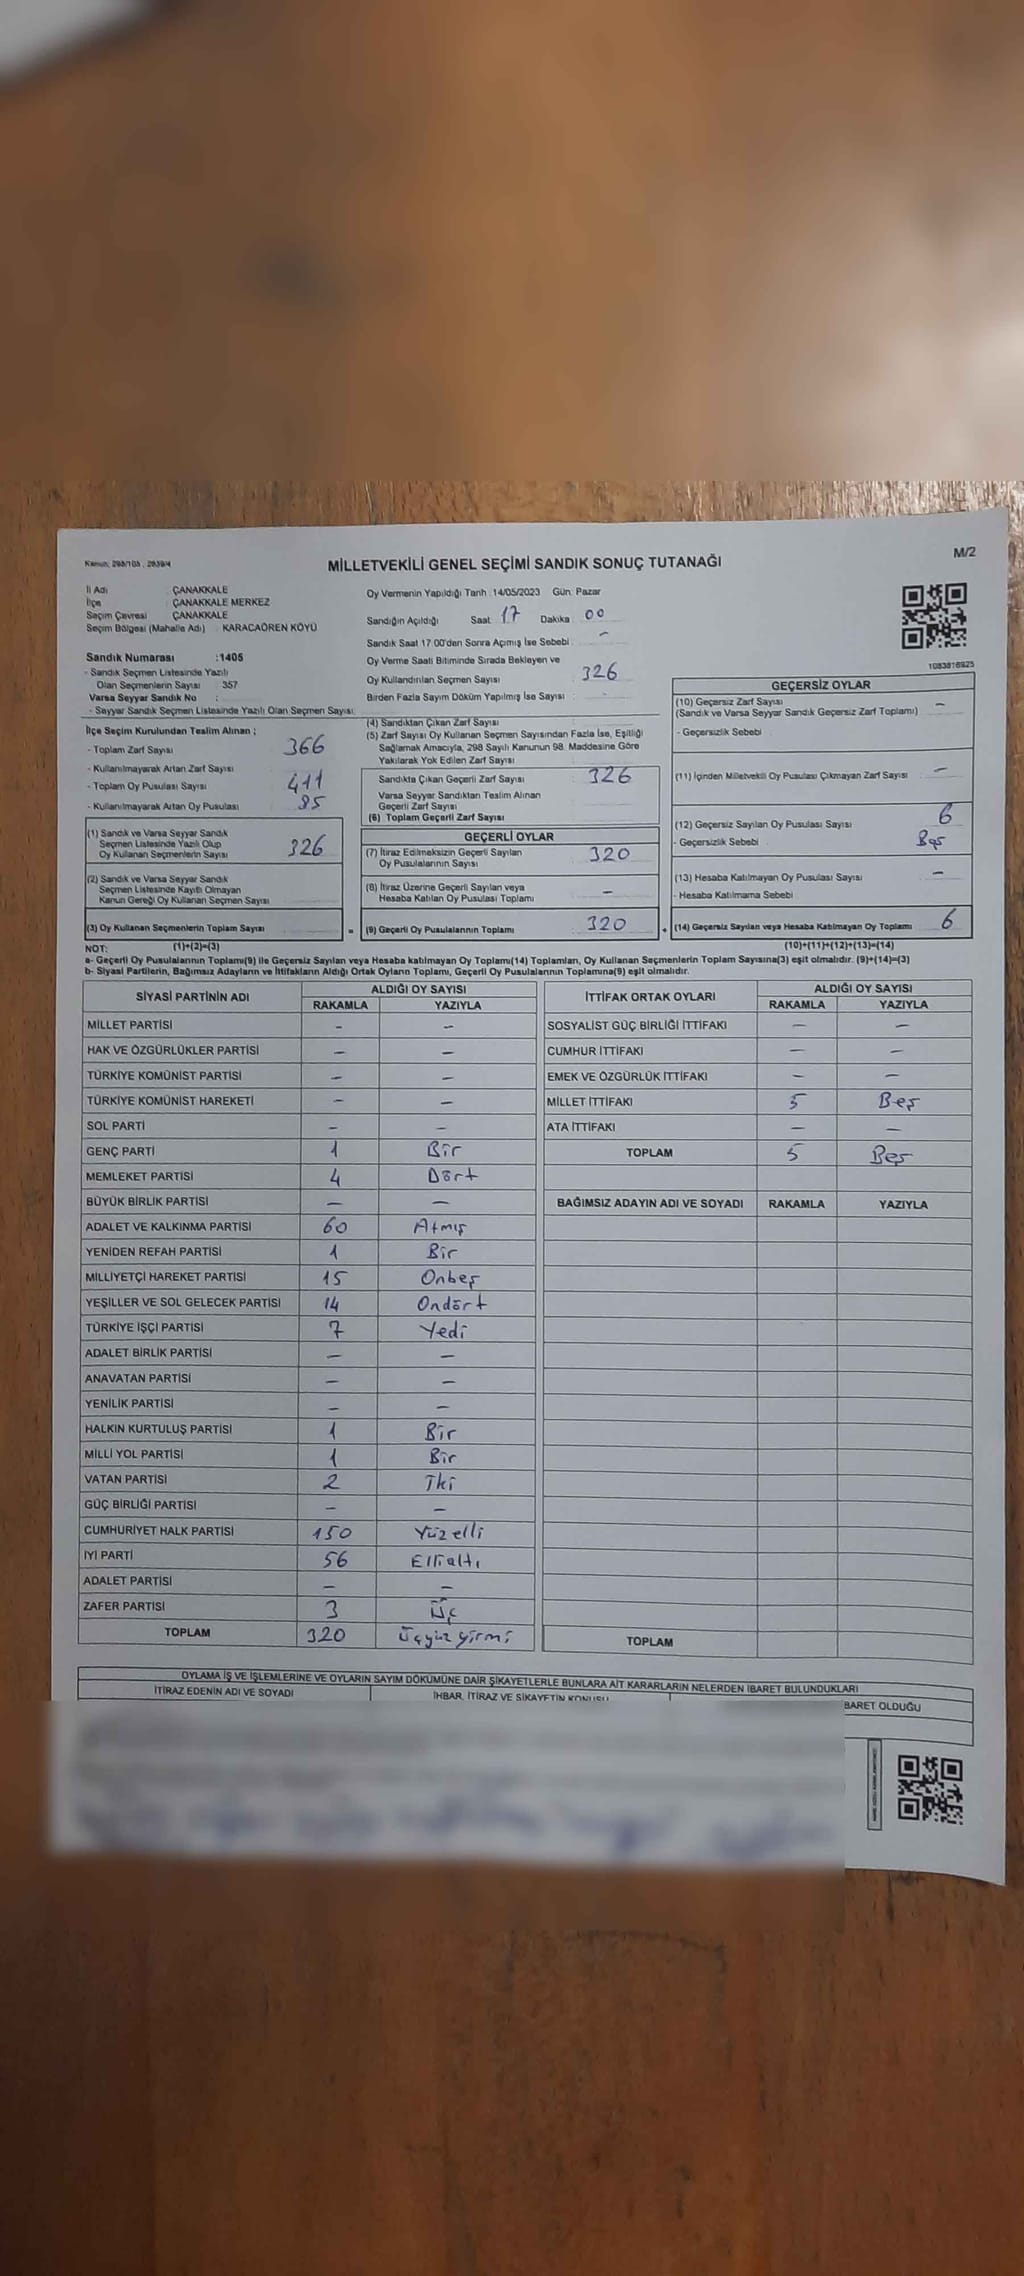 Kanun: 298/105, 2839/4
MİLLETVEKİLİ GENEL SEÇİMİ SANDIK SONUÇ TUTANAĞI
M/2
İl Adı : ÇANAKKALE
İlçe : ÇANAKKALE MERKEZ
Seçim Çevresi : ÇANAKKALE
Seçim Bölgesi (Mahalle Adı) : KARACAÖREN KÖYÜ
Sandık Numarası :1405
- Sandık Seçmen Listesinde Yazılı
Olan Seçmenlerin Sayısı : 357
Varsa Seyyar Sandık No :
- Seyyar Sandık Seçmen Listesinde Yazılı Olan Seçmen Sayısı:
İlçe Seçim Kurulundan Teslim Alınan ;
- Toplam Zarf Sayısı 366
- Kullanılmayarak Artan Zarf Sayısı
- Toplam Oy Pusulası Sayısı 411
- Kullanılmayarak Artan Oy Pusulası 85
(1) Sandık ve Varsa Seyyar Sandık
Seçmen Listesinde Yazılı Olup
Oy Kullanan Seçmenlerin Sayısı 326
(2) Sandık ve Varsa Seyyar Sandık
Seçmen Listesinde Kayıtlı Olmayan
Kanun Gereği Oy Kullanan Seçmen Sayısı
(3) Oy Kullanan Seçmenlerin Toplam Sayısı =
Oy Vermenin Yapıldığı Tarih :14/05/2023 Gün: Pazar
Sandığın Açıldığı Saat: 17 Dakika: 00
Sandık Saat 17.00'den Sonra Açılmış İse Sebebi : –
Oy Verme Saati Bitiminde Sırada Bekleyen ve
Oy Kullandırılan Seçmen Sayısı 326
Birden Fazla Sayım Döküm Yapılmış İse Sayısı : -
(4) Sandıktan Çıkan Zarf Sayısı
(5) Zarf Sayısı Oy Kullanan Seçmen Sayısından Fazla İse, Eşitliği
Sağlamak Amacıyla, 298 Sayılı Kanunun 98. Maddesine Göre
Yakılarak Yok Edilen Zarf Sayısı
Sandıkta Çıkan Geçerli Zarf Sayısı 326
Varsa Seyyar Sandıktan Teslim Alınan
Geçerli Zarf Sayısı
(6) Toplam Geçerli Zarf Sayısı
GEÇERLİ OYLAR
(7) İtiraz Edilmeksizin Geçerli Sayılan
Oy Pusulalarının Sayısı 320
(8) İtiraz Üzerine Geçerli Sayılan veya
Hesaba Katılan Oy Pusulası Toplamı –
(9) Geçerli Oy Pusulalarının Toplamı 320 +
1083816925
GEÇERSİZ OYLAR
(10) Geçersiz Zarf Sayısı –
(Sandık ve Varsa Seyyar Sandık Geçersiz Zarf Toplamı)
- Geçersizlik Sebebi
(11) İçinden Milletvekili Oy Pusulası Çıkmayan Zarf Sayısı –
(12) Geçersiz Sayılan Oy Pusulası Sayısı 6
- Geçersizlik Sebebi :
(13) Hesaba Katılmayan Oy Pusulası Sayısı –
- Hesaba Katılmama Sebebi
(14) Geçersiz Sayılan veya Hesaba Katılmayan Oy Toplamı 6
NOT: (1)+(2)=(3) (10)+(11)+(12)+(13)=(14)
a- Geçerli Oy Pusulalarının Toplamı(9) ile Geçersiz Sayılan veya Hesaba katılmayan Oy Toplamı(14) Toplamları, Oy Kullanan Seçmenlerin Toplam Sayısına(3) eşit olmalıdır. (9)+(14)=(3)
b- Siyasi Partilerin, Bağımsız Adayların ve İttifakların Aldığı Ortak Oyların Toplamı, Geçerli Oy Pusulalarının Toplamına(9) eşit olmalıdır.
SİYASİ PARTİNİN ADI ALDIĞI OY SAYISI
RAKAMLA YAZIYLA
MİLLET PARTİSİ – –
HAK VE ÖZGÜRLÜKLER PARTİSİ – –
TÜRKİYE KOMÜNİST PARTİSİ – –
TÜRKİYE KOMÜNİST HAREKETİ – –
SOL PARTİ – –
GENÇ PARTİ 1 Bir
MEMLEKET PARTİSİ 4 Dört
BÜYÜK BİRLİK PARTİSİ – –
ADALET VE KALKINMA PARTİSİ 60 Atmış
YENİDEN REFAH PARTİSİ 1 Bir
MİLLİYETÇİ HAREKET PARTİSİ 15 Onbeş
YEŞİLLER VE SOL GELECEK PARTİSİ 14 Ondört
TÜRKİYE İŞÇİ PARTİSİ 7 Yedi
ADALET BİRLİK PARTİSİ – –
ANAVATAN PARTİSİ – –
YENİLİK PARTİSİ – –
HALKIN KURTULUŞ PARTİSİ 1 Bir
MİLLİ YOL PARTİSİ 1 Bir
VATAN PARTİSİ 2 İki
GÜÇ BİRLİĞİ PARTİSİ – –
CUMHURİYET HALK PARTİSİ 150 Yüzelli
İYİ PARTİ 56 Ellialtı
ADALET PARTİSİ – –
ZAFER PARTİSİ 3 Üç
TOPLAM 320 Üçyüzyirmi
İTTİFAK ORTAK OYLARI ALDIĞI OY SAYISI
RAKAMLA YAZIYLA
SOSYALİST GÜÇ BİRLİĞİ İTTİFAKI – –
CUMHUR İTTİFAKI – –
EMEK VE ÖZGÜRLÜK İTTİFAKI – –
MİLLET İTTİFAKI 5 Beş
ATA İTTİFAKI – –
TOPLAM 5 Beş
BAĞIMSIZ ADAYIN ADI VE SOYADI RAKAMLA YAZIYLA
TOPLAM
OYLAMA İŞ VE İŞLEMLERİNE VE OYLARIN SAYIM DÖKÜMÜNE DAİR ŞİKAYETLERLE BUNLARA AİT KARARLARIN NELERDEN İBARET BULUNDUKLARI
İTİRAZ EDENİN ADI VE SOYADI İHBAR, İTİRAZ VE ŞİKAYETİN KONUSU BARET OLDUĞU